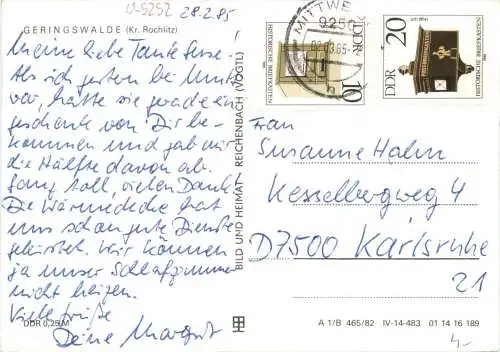 U-5252 28.2.85
GERINGSWALDE (Kr. Rochlitz)
Meine liebe Tante
Als ich gestern bei Mutti
war, hatte sie gerade ein
geschenk von Dir be-
kommen und gab mir
die Hälfte davon ab.
Ganz toll, vielen Dank.
Die Wärmedecke hat
uns schon gute Dienste
geleistet. Wir können
ja unser Schlafzimmer
nicht heizen.
Viele Grüße
Deine Margret
DDR 0,25 M
BILD UND HEIMAT REICHENBACH (VOGTL)
MITTWE
9250
02.03.85
HISTORISCHE BRIEFKÄSTEN
DDR
10
20
DDR
HISTORISCHE BRIEFKÄSTEN
Frau
Susanne Hahn
Kesselbergweg 4
D7500 Karlsruhe
21
A 1/B 465/82 IV-14-483 01 14 16 189
4,-